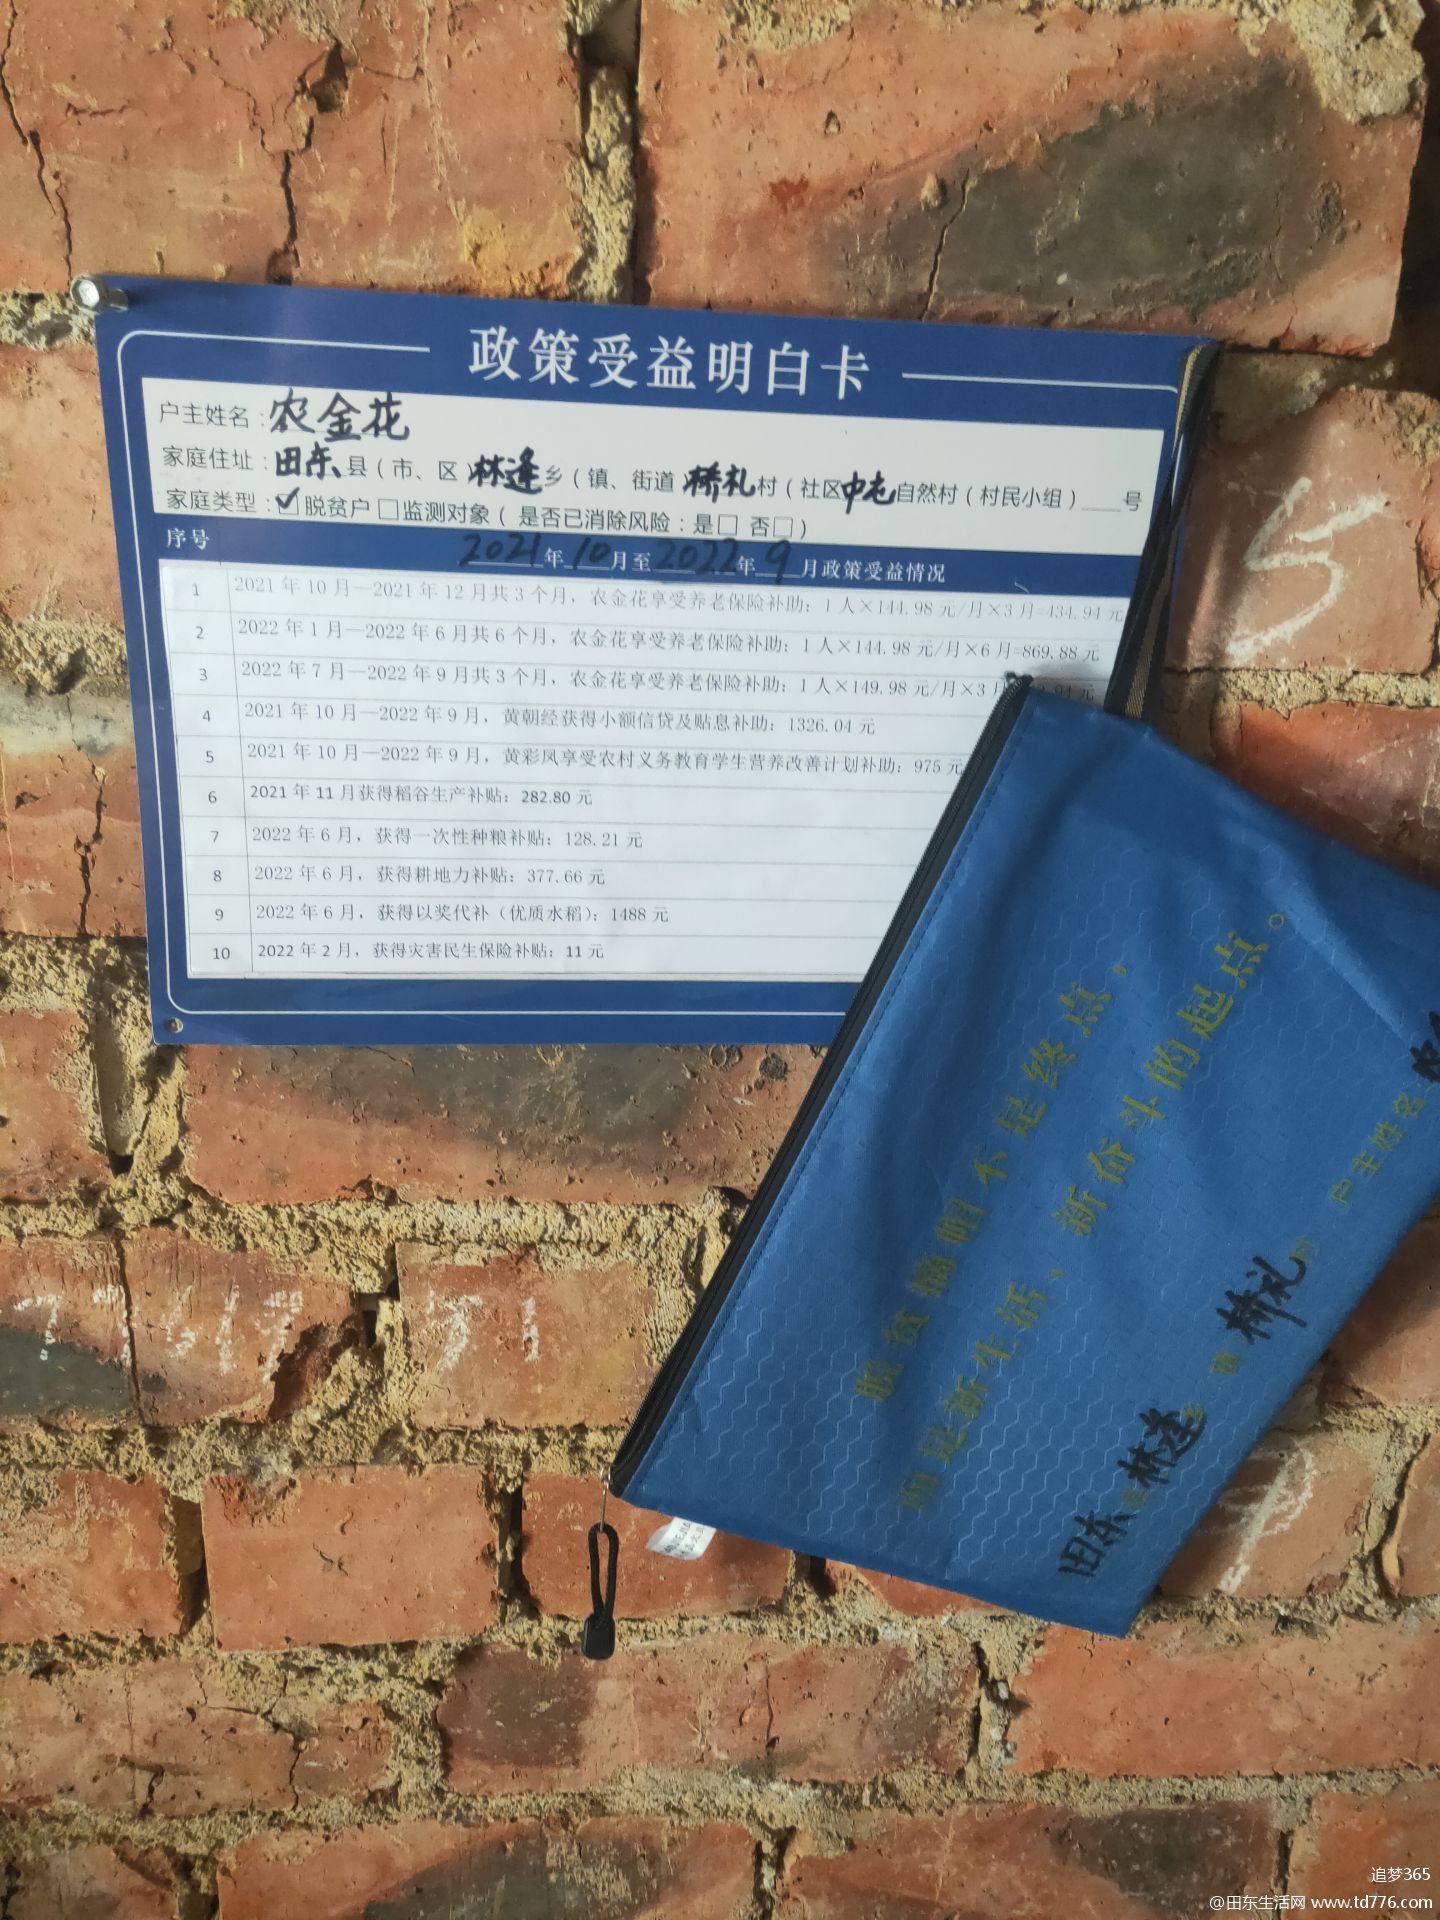 政策受益明白卡
户主姓名：农金花
家庭住址：田东县（市、区）林逢乡（镇、街道）桥礼村（社区）中屯自然村（村民小组）____号
家庭类型：☑脱贫户 □监测对象（ 是否已消除风险：是□ 否□）
序号 2021年10月至2022年9月政策受益情况
1 2021年10月—2021年12月共3个月，农金花享受养老保险补助：1人×144.98元/月×3月=434.94元
2 2022年1月—2022年6月共6个月，农金花享受养老保险补助：1人×144.98元/月×6月=869.88元
3 2022年7月—2022年9月共3个月，农金花享受养老保险补助：1人×149.98元/月×3月 .94元
4 2021年10月—2022年9月，黄朝经获得小额信贷及贴息补助：1326.04元
5 2021年10月—2022年9月，黄彩凤享受农村义务教育学生营养改善计划补助：975元
6 2021年11月获得稻谷生产补贴：282.80元
7 2022年6月，获得一次性种粮补贴：128.21元
8 2022年6月，获得耕地力补贴：377.66元
9 2022年6月，获得以奖代补（优质水稻）：1488元
10 2022年2月，获得灾害民生保险补贴：11元
脱贫摘帽不是终点，
而是新生活、新奋斗的起点。
田东县林逢乡镇桥礼村 户主姓名
5
追梦365
@田东生活网 www.td776.com